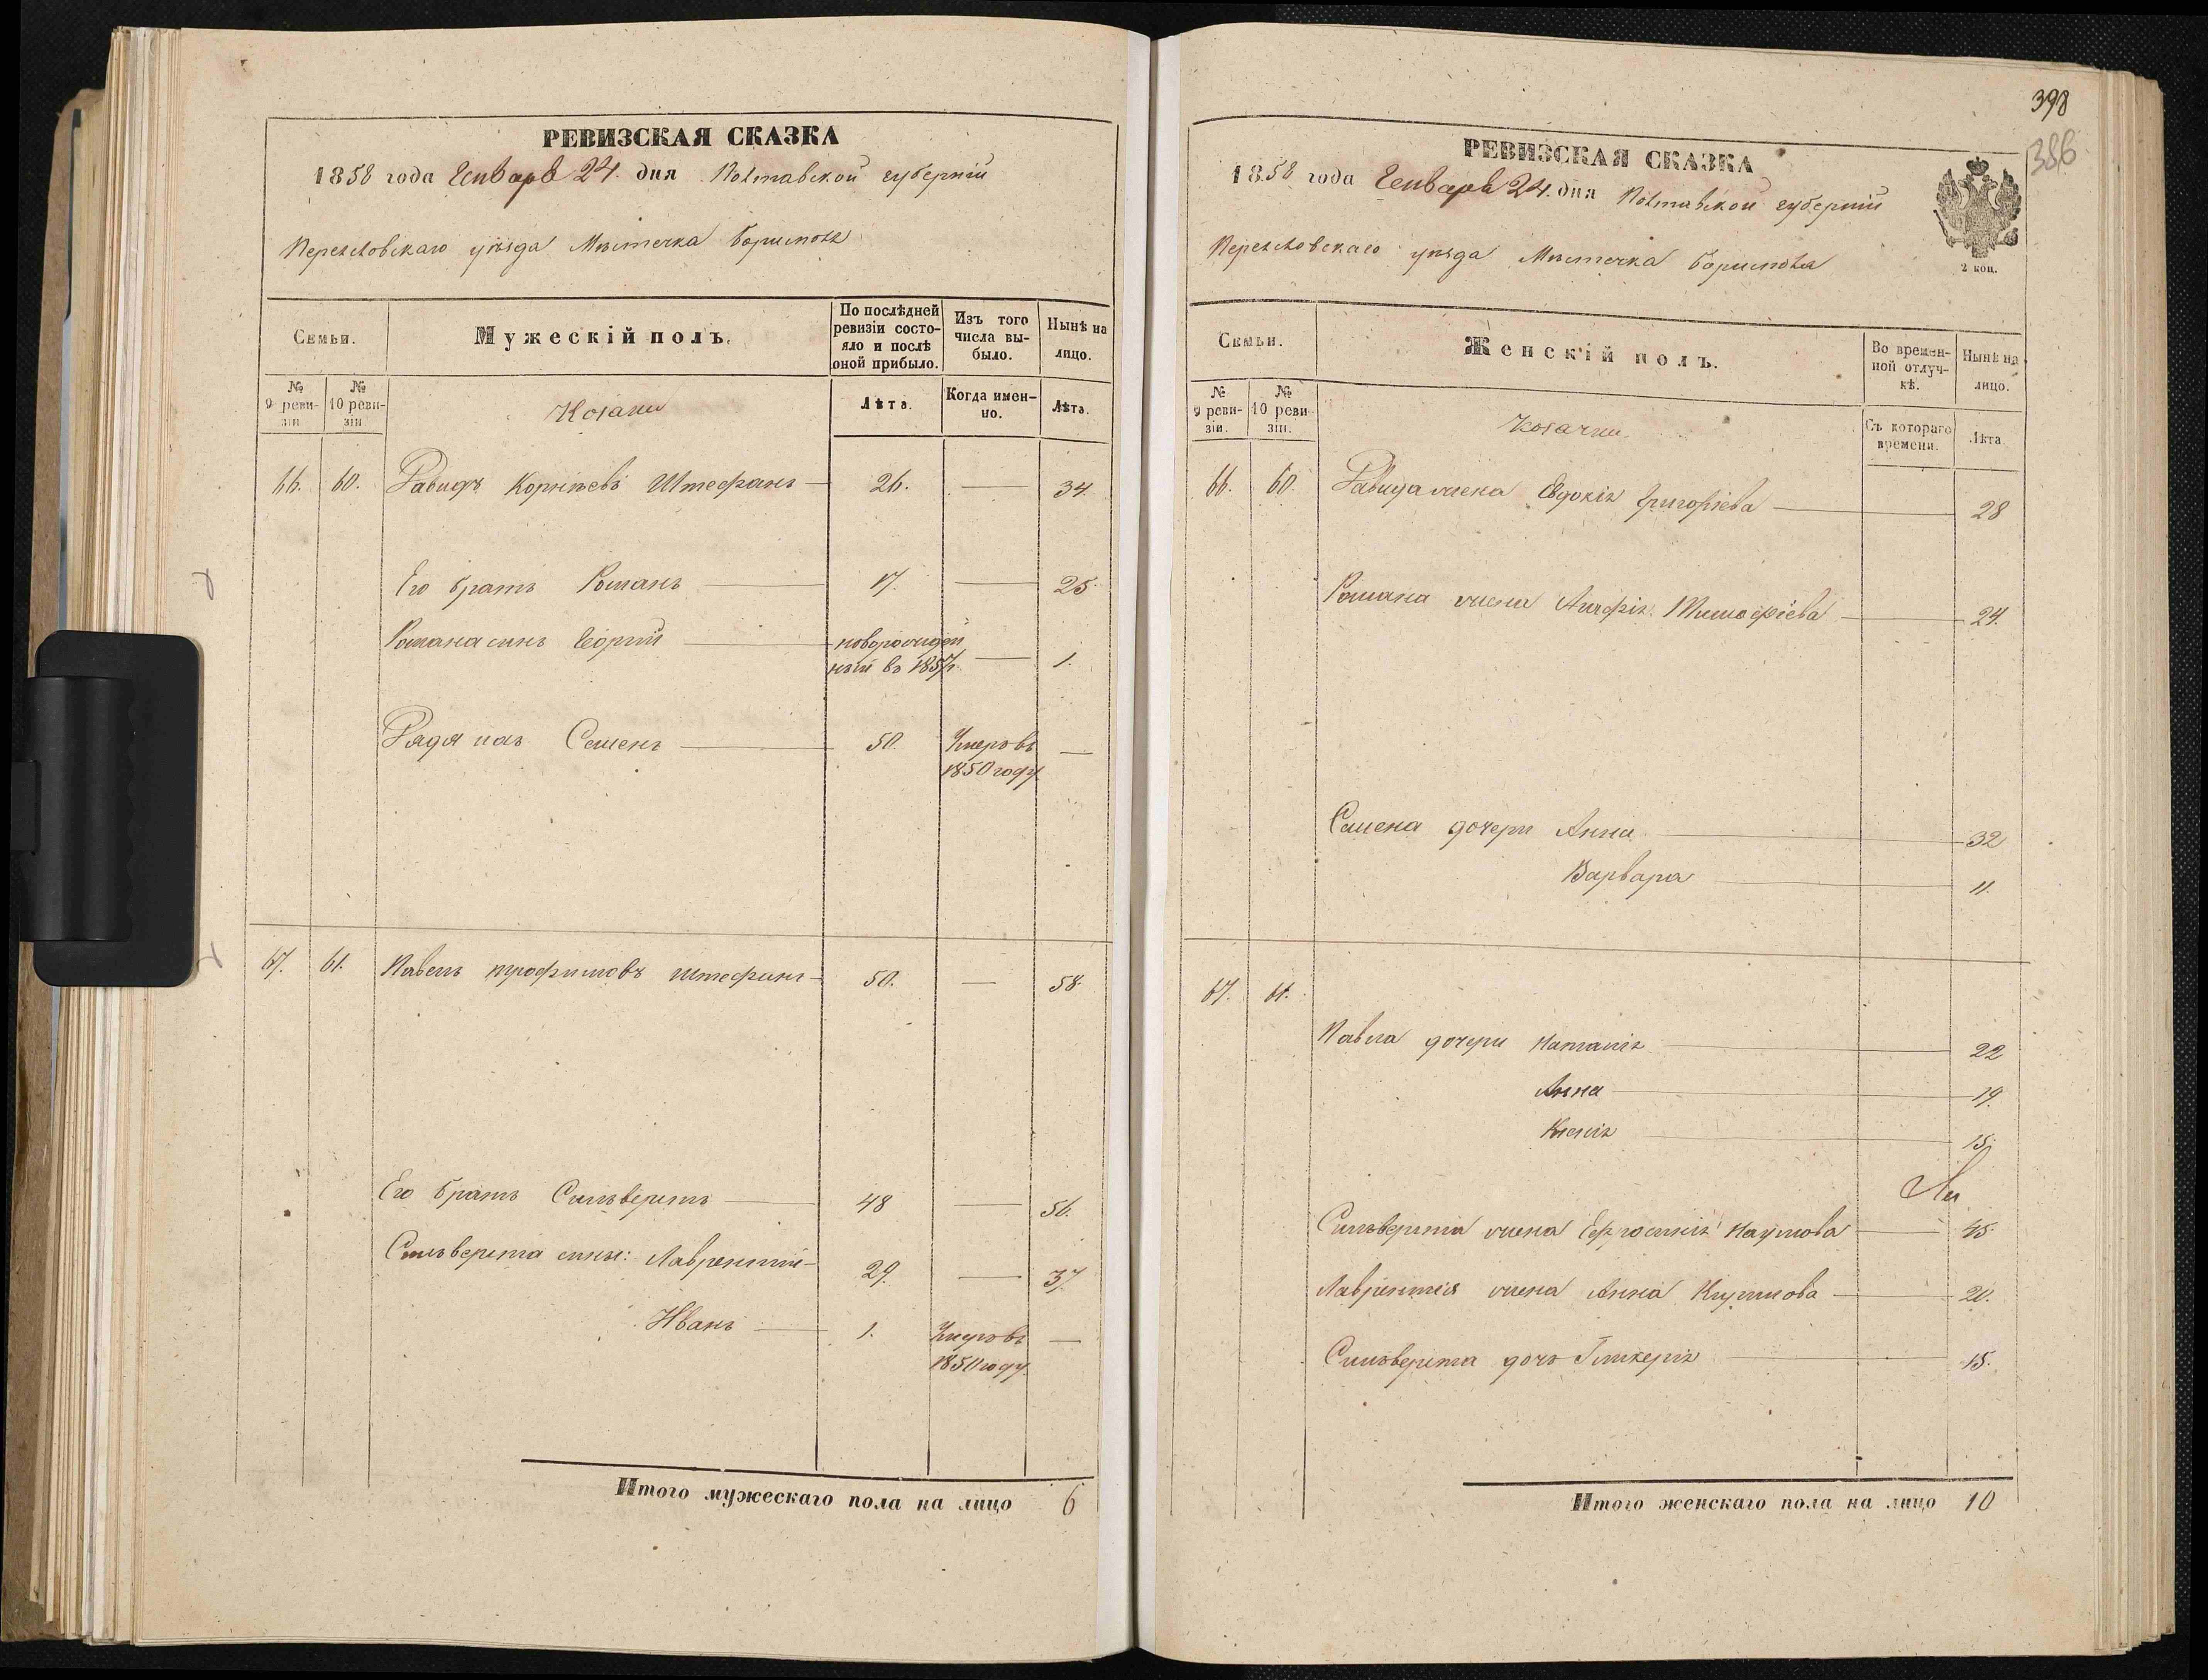 РЕВИЗСКАЯ СКАЗКА
1858 года Генваря 24. дня Полтавской губернiи
Переяловскаго уѣзда Мѣстечка Борисполя
Семьи.
Мужескiй полъ.
По послѣдней ревизiи состояло и послѣ оной прибыло.
Изъ того числа выбыло.
Нынѣ на лицо.
№ 9 ревизiи
№ 10 ревизiи
Козаки
Лѣта.
Когда именно.
Лѣта.
66. 60. Давидъ Корнѣевъ Штефанъ 26. — 34.
Его братъ Романъ 17. — 25.
Романа сынъ Георгiй новорожден
ный въ 1857г. — 1.
Дядя ихъ Семенъ 50. Умеръ въ —
1850 году
67. 61. Павелъ Трофимовъ Штефанъ 50. — 58.
Его братъ Сильверстъ 48 — 56.
Сильверста сины: Лаврентiй 29. — 37
Иванъ 1. Умеръ въ —
1850 году.
Итого мужескаго пола на лицо 6
398
386
РЕВИЗСКАЯ СКАЗКА
1858 года Генваря 24. дня Полтавской губернiи
Переяловскаго уѣзда Мѣстечка Борисполя
2 коп.
Семьи.
Женскiй полъ.
Во временной отлучкѣ.
Нынѣ на лицо.
№ 9 ревизiи.
№ 10 ревизiи.
Козачки.
Съ котораго времени.
Лѣта
66. 60. Давида жена Евдокiя Григорiева 28
Романа жена Агафiя Тимофiева 24.
Семена дочери Анна 32
Варвара 11.
67. 61.
Павла дочери Наталiя 22
Анна 19.
Ксенiя 15.
Сильверста жена Ефросинiя Наумова 45.
Лаврентiя жена Анна Климова 20.
Сильверста дочь Гликерiя 15.
Итого женскаго пола на лицо 10